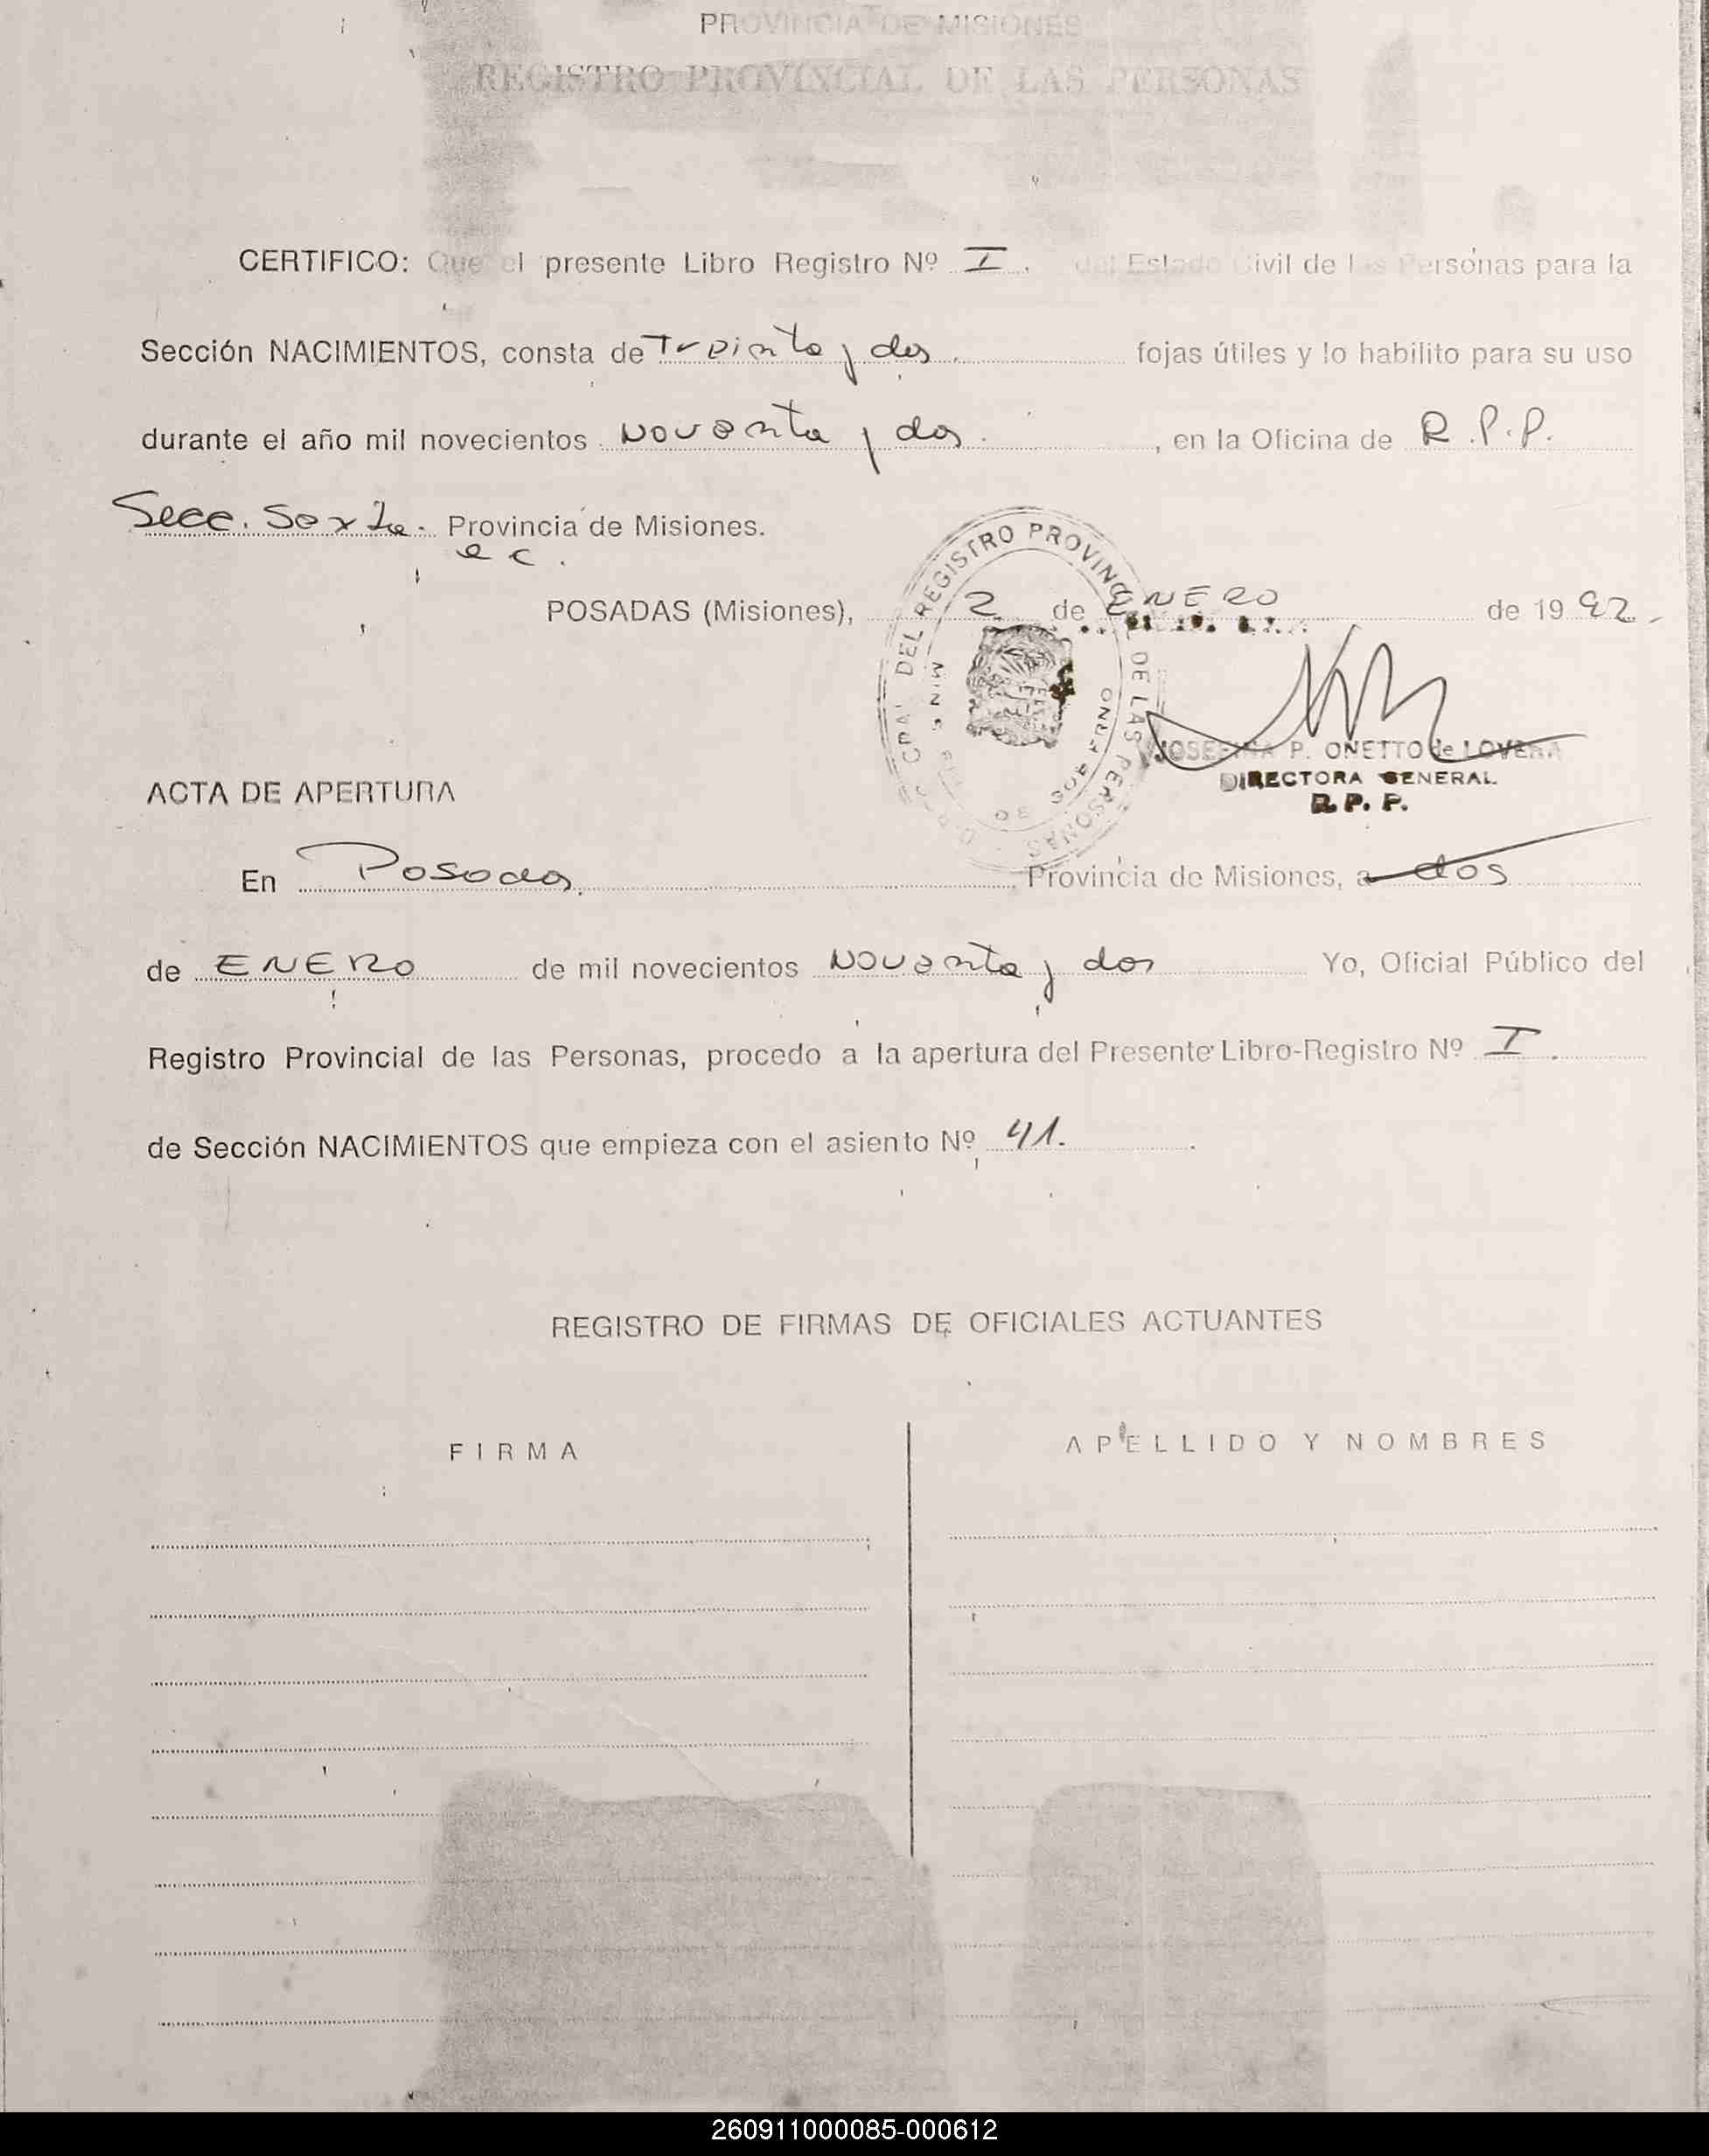 PROVINCIA DE MISIONES
REGISTRO PROVINCIAL DE LAS PERSONAS
CERTIFICO: Que el presente Libro Registro Nº I. del Estado Civil de las Personas para la
Sección NACIMIENTOS, consta de Treinta y dos. fojas útiles y lo habilito para su uso
durante el año mil novecientos Noventa y dos. , en la Oficina de R.P.P.
Secc. Sexta. Provincia de Misiones.
POSADAS (Misiones), 2 de ENERO de 1992.
DEL REGISTRO PROVINCIAL DE LAS PERSONAS
JOSEFINA P. ONETTO de LOVERA
DIRECTORA GENERAL
R. P. P.
ACTA DE APERTURA
En Posadas, Provincia de Misiones, a dos
de ENERO de mil novecientos Noventa y dos Yo, Oficial Público del
Registro Provincial de las Personas, procedo a la apertura del Presente Libro-Registro Nº I.
de Sección NACIMIENTOS que empieza con el asiento Nº 41.
REGISTRO DE FIRMAS DE OFICIALES ACTUANTES
FIRMA APELLIDO Y NOMBRES
260911000085-000612